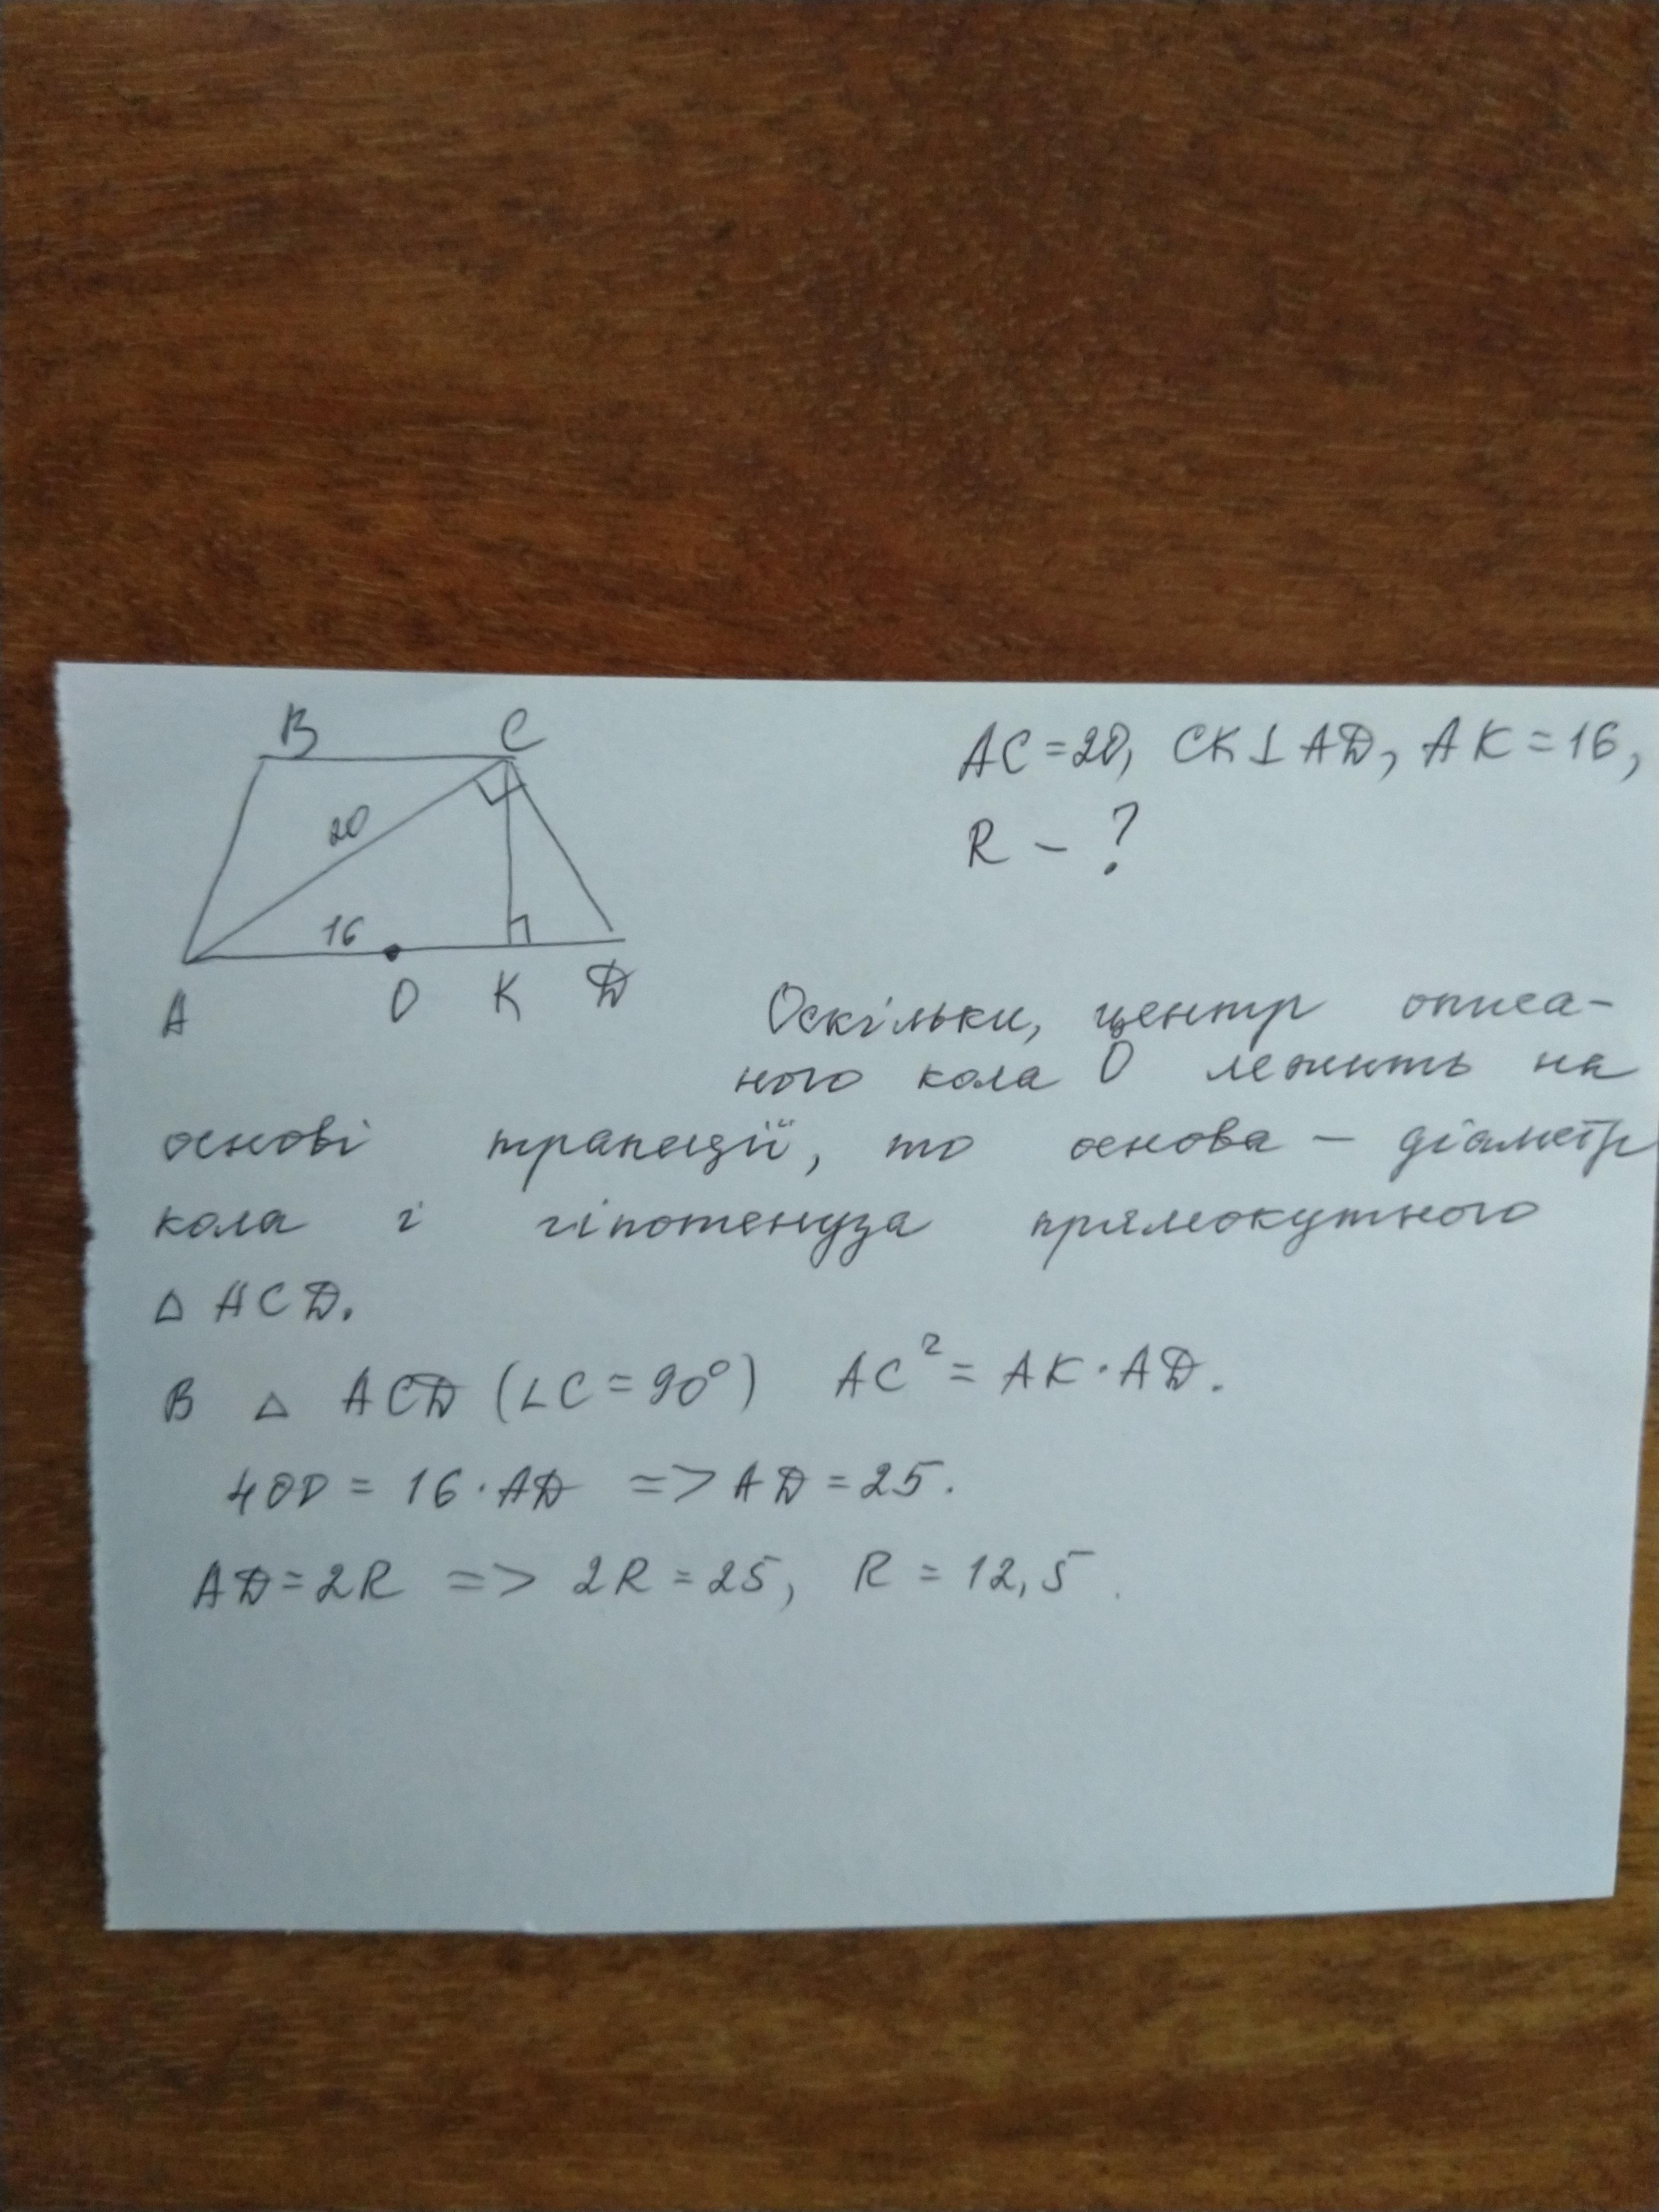 B C
AC=20, CK⊥AD, AK=16,
20
R - ?
16
A O K D
Оскільки, центр описа-
ного кола O лежить на
основі трапеції, то основа – діаметр
кола і гіпотенуза прямокутного
△ ACD.
В △ ACD (∠C=90°) AC²= AK·AD.
400 = 16·AD => AD=25.
AD=2R => 2R=25, R=12,5.